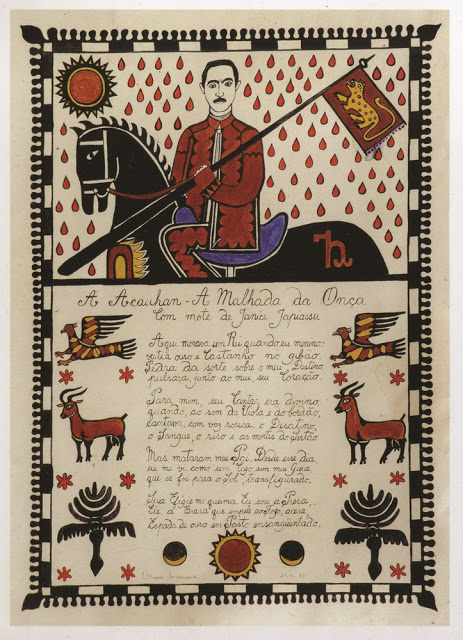 A Acauhan - A Malhada da Onça
Com mote de Janice Japiassu
Aqui morava um Rei quando eu menino:
vestia ouro e Castanho no gibão.
Pedra da sorte sobre o meu Destino,
pulsava, junto ao meu, seu Coração.
Para mim, seu Cantar era divino,
quando, ao som da Viola e do bordão,
cantava, com voz rouca, o Desatino,
o Sangue, o riso e as mortes do Sertão.
Mas mataram meu Pai. Desde esse dia,
eu me vi como um Cego sem meu Guia
que se foi para o Sol, transfigurado.
Sua Efígie me queima. Eu sou a Presa,
Ele, a Brasa que impele ao Fogo, acesa,
Espada de ouro em Pasto ensangüentado.